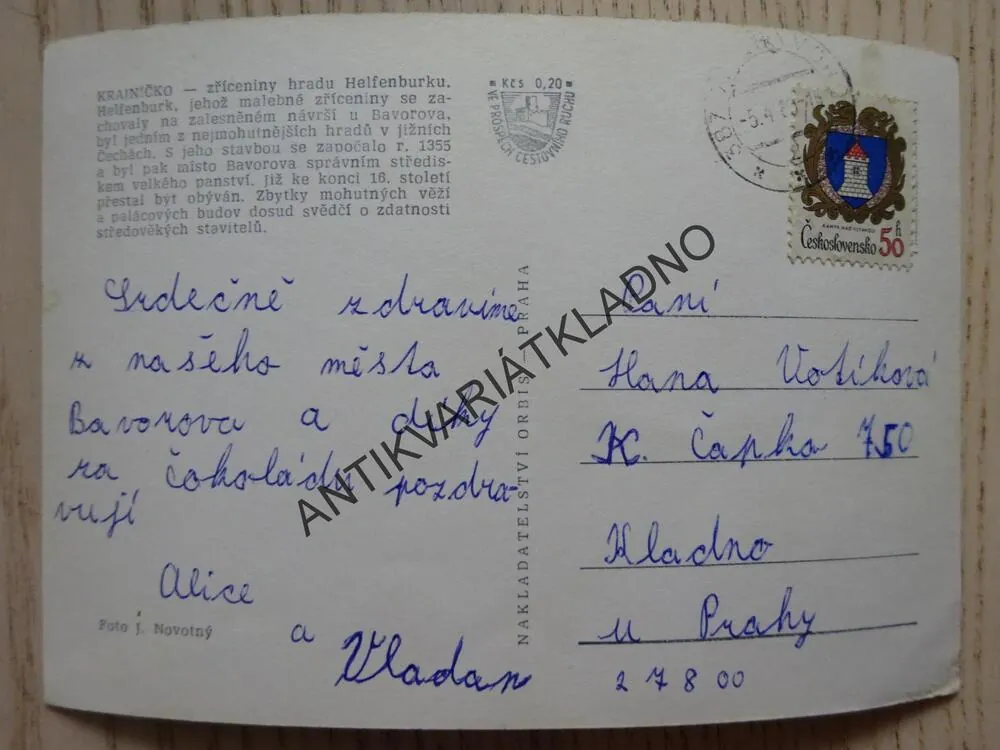 KRAJNÍČKO — zříceniny hradu Helfenburku.
Helfenburk, jehož malebné zříceniny se za-
chovaly na zalesněném návrší u Bavorova,
byl jedním z nejmohutnějších hradů v jižních
Čechách. S jeho stavbou se započalo r. 1355
a byl pak místo Bavorova správním středis-
kem velkého panství. Již ke konci 16. století
přestal být obýván. Zbytky mohutných věží
a palácových budov dosud svědčí o zdatnosti
středověkých stavitelů.
Kčs 0,20
VE PROSPĚCH CESTOVNÍHO RUCHU
Československo 50 h
Srdečně zdravíme
z našeho města
Bavorova a díky
za čokoládu pozdra-
vují
Alice
a
Vladan
Foto J. Novotný
NAKLADATELSTVÍ ORBIS — PRAHA
Paní
Hana Votíková
K. Čapka 750
Kladno
u Prahy
27800
ANTIKVARIÁTKLADNO